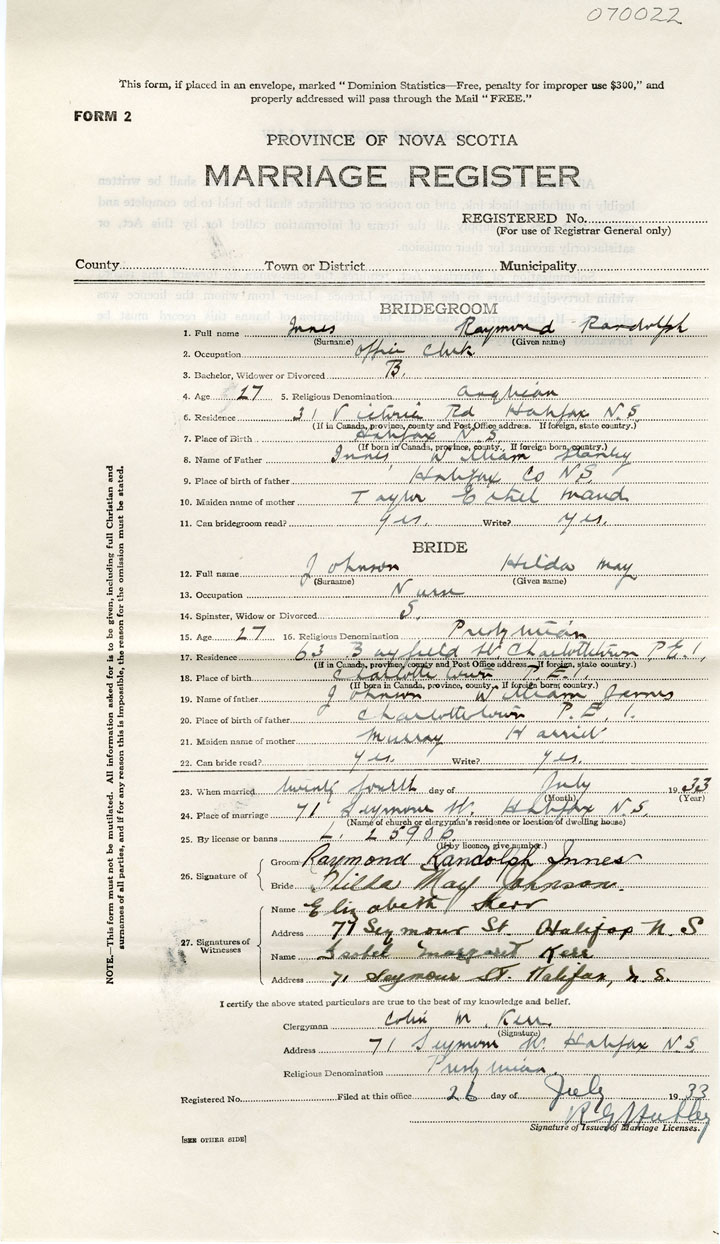 070022
This form, if placed in an envelope, marked "Dominion Statistics—Free, penalty for improper use $300," and
properly addressed will pass through the Mail "FREE."
FORM 2
PROVINCE OF NOVA SCOTIA
MARRIAGE REGISTER
REGISTERED No.
(For use of Registrar General only)
County Town or District Municipality
BRIDEGROOM
1. Full name Innes Raymond Randolph
(Surname) (Given name)
2. Occupation Office Clerk
3. Bachelor, Widower or Divorced B.
4. Age 27 5. Religious Denomination Anglican
6. Residence 31 Victoria Rd Halifax N.S
(If in Canada, province, county and Post Office address. If foreign, state country.)
7. Place of Birth Halifax N.S.
(If born in Canada, province, county. If foreign born, country.)
8. Name of Father Innes William Stanley
9. Place of birth of father Halifax Co N.S.
10. Maiden name of mother Taylor Ethel Maud
11. Can bridegroom read? Yes. Write? Yes.
BRIDE
12. Full name Johnson Hilda May
(Surname) (Given name)
13. Occupation Nurse
14. Spinster, Widow or Divorced S.
15. Age 27 16. Religious Denomination Presbyterian
17. Residence 63 Bayfield St. Charlottetown P.E.I.
(If in Canada, province, county and Post Office address. If foreign, state country.)
18. Place of birth Charlottetown P.E.I.
(If born in Canada, province, county. If foreign born, country.)
19. Name of father Johnson William James
20. Place of birth of father Charlottetown P.E.I.
21. Maiden name of mother Murray Harriet
22. Can bride read? Yes. Write? Yes.
23. When married twenty fourth day of July 1933
(Month) (Year)
24. Place of marriage 71 Seymour St. Halifax N.S.
(Name of church or clergyman's residence or location of dwelling house)
25. By license or banns L. 25906
(If by licence, give number.)
26. Signature of
Groom Raymond Randolph Innes
Bride Hilda May Johnson.
27. Signatures of Witnesses
Name Elizabeth Kerr
Address 71 Seymour St. Halifax N.S
Name Isabel Margaret Kerr
Address 71 Seymour St. Halifax, N.S.
I certify the above stated particulars are true to the best of my knowledge and belief.
Clergyman Colin M. Kerr
(Signature)
Address 71 Seymour St. Halifax N.S
Religious Denomination Presbyterian
Registered No. Filed at this office 26 day of July 1933
Signature of Issuer of Marriage Licenses.
[SEE OTHER SIDE]
NOTE.—This form must not be mutilated. All information asked for is to be given, including full Christian and
surnames of all parties, and if for any reason this is impossible, the reason for the omission must be stated.